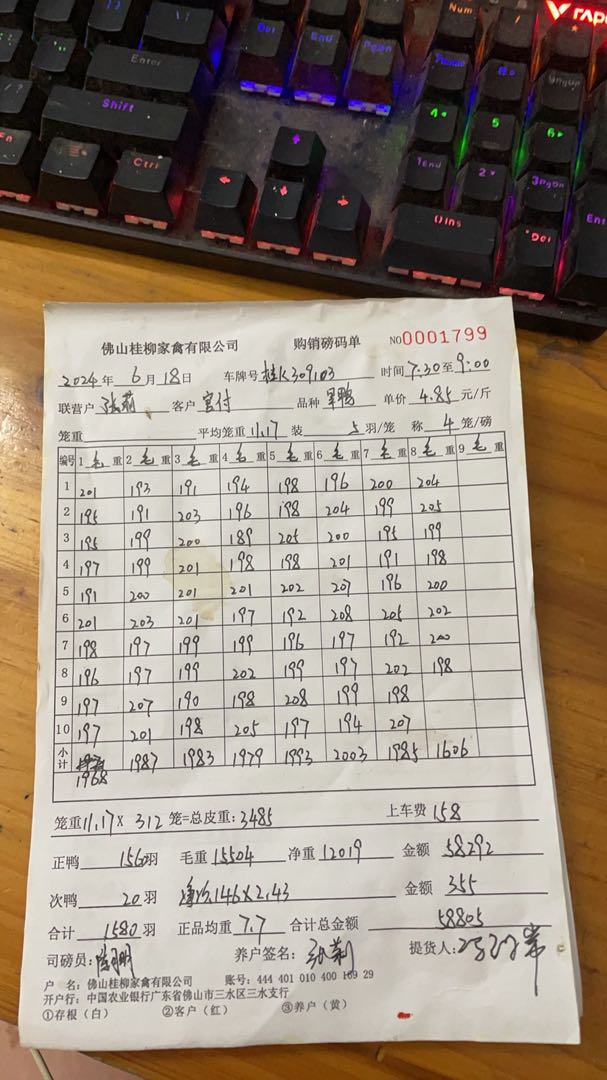 Num
RAP
Del
End
PgDn
Enter
Shift
Ctrl
Fn
4
5
6
1End
2
3PgDn
0Ins
Del
佛山桂柳家禽有限公司 购销磅码单 NO0001799
2024年6月18日 车牌号桂K309103 时间7:30至9:00
联营户 客户 品种 单价4.85元/斤
笼重 平均笼重11.17 装5羽/笼 称4笼/磅
编号 1毛重 2毛重 3毛重 4毛重 5毛重 6毛重 7毛重 8毛重 9毛重
1 201 193 191 194 198 196 200 204
2 195 191 203 196 198 204 199 205
3 195 199 200 189 205 200 195 199
4 197 199 201 198 198 201 191 198
5 191 200 201 201 202 207 196 200
6 201 203 201 197 192 208 205 202
7 198 197 199 199 196 197 192 200
8 196 197 199 202 199 197 202 198
9 197 207 190 198 208 199 198
10 197 201 198 205 197 194 207
小计 1968 1987 1983 1979 1993 2003 1985 1606
笼重11.17X312笼=总皮重:3485 上车费158
正鸭1560羽 毛重15504 净重12019 金额58292
次鸭20羽 146X2.43 金额355
合计1580羽 正品均重7.7 合计总金额58805
司磅员: 养户签名: 提货人:
户 名:佛山桂柳家禽有限公司 账号:444 401 010 400 169 29
开户行:中国农业银行广东省佛山市三水区三水支行
①存根(白) ②客户(红) ③养户(黄)